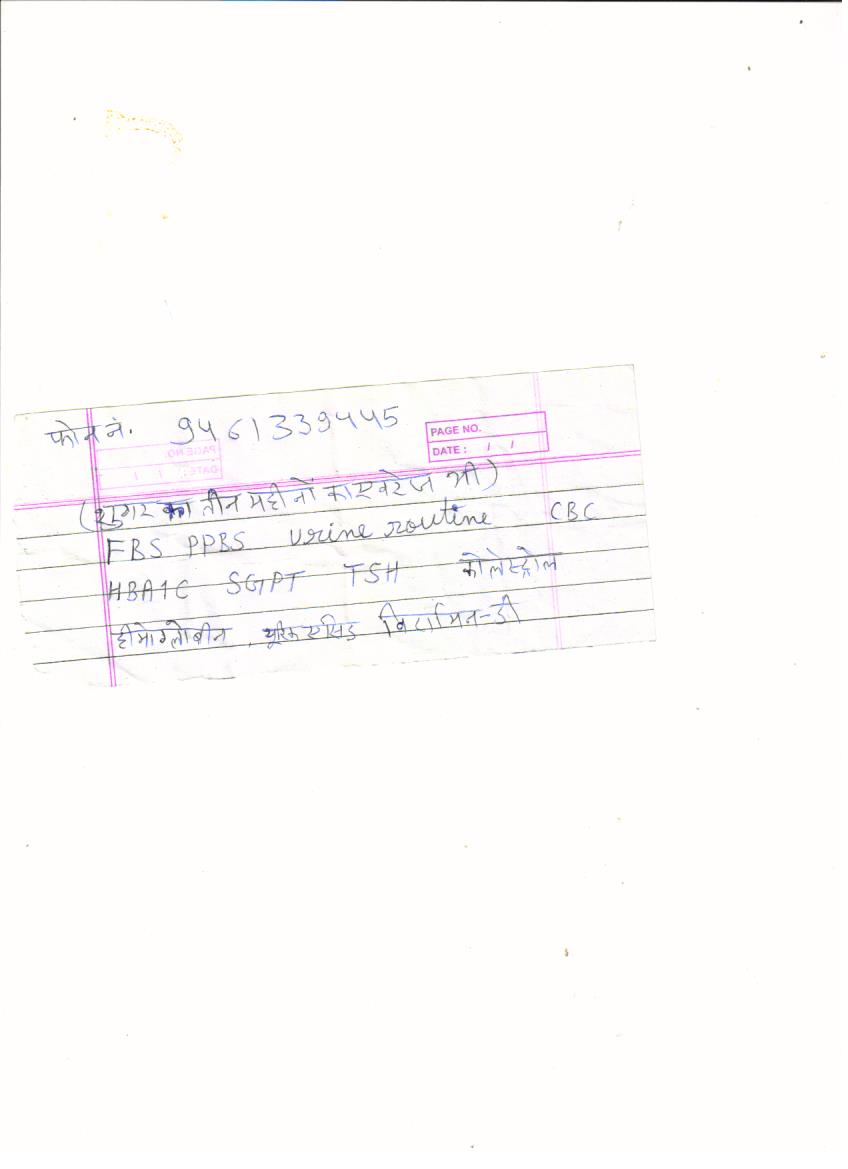 फोन नं. 9461339445
PAGE NO.
DATE : / /
(शुगर का तीन महीनों का एवरेज भी)
FBS PPBS Urine routine CBC
HBA1C SGPT TSH कोलेस्ट्रोल
हीमोग्लोबीन, यूरिक एसिड विटामिन-डी